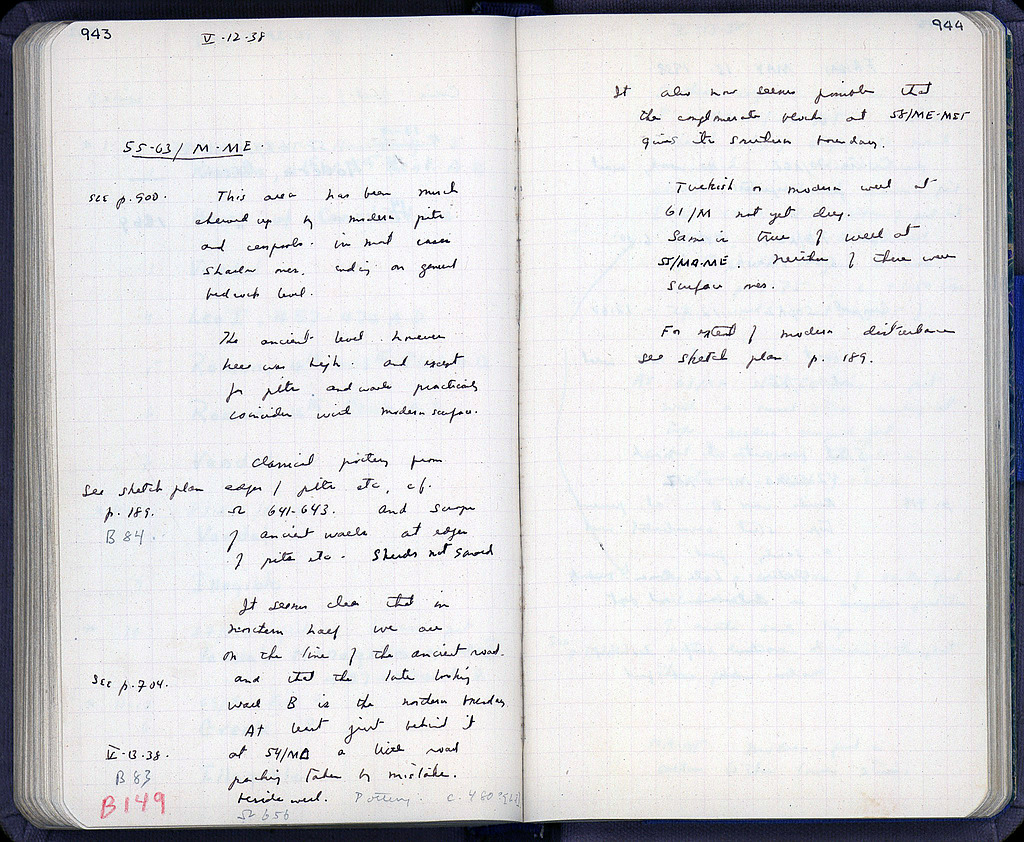 943
V·12·38
55-63/M-ME
See p. 900.
This area has been much
chewed up by modern pits
and cesspools. in most cases
shallow ones, ending on general
bedrock level.
The ancient level however
here was high and except
for pits and wells practically
coincides with modern surface.
Classical pottery from
See sketch plan edges of pits etc, cf.
p. 189. Ω 641-643. and scraps
B 84. of ancient walls at edges
of pits etc. Sherds not saved
It seems clear that in
northern half we are
on the line of the ancient road.
See p. 704. and that the late looking
wall B is the northern boundary
At least just behind it
V·13·38. at 54/MΔ a little road
B 83 packing taken by mistake.
B149 beside well. Pottery. c. 480
Ω 656
944
It also now seems possible that
the conglomerate block at 58/ME-MST
gives the southern boundary.
Turkish or modern well at
61/M not yet dug.
Same is true of well at
55/MA-ME. Neither of these were
surface ones.
For extent of modern disturbance
see sketch plan p. 189.